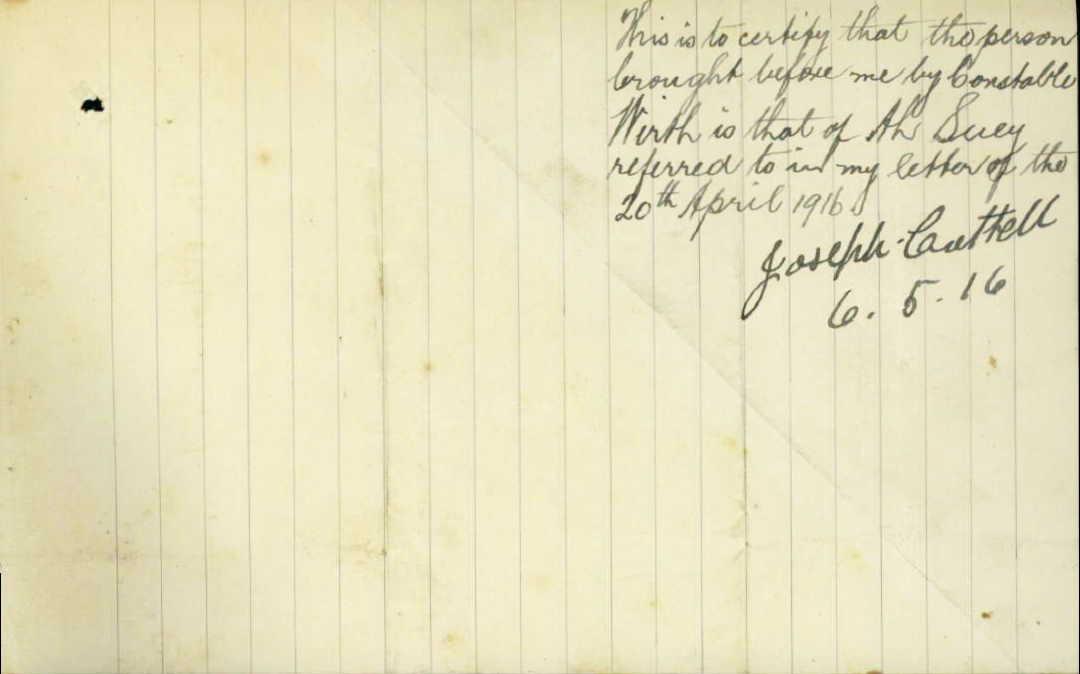 This is to certify that the person
brought before me by Constable
Wirth is that of Ah Suey
referred to in my letter of the
20th April 1916.
Joseph Cauttell
6. 5. 16